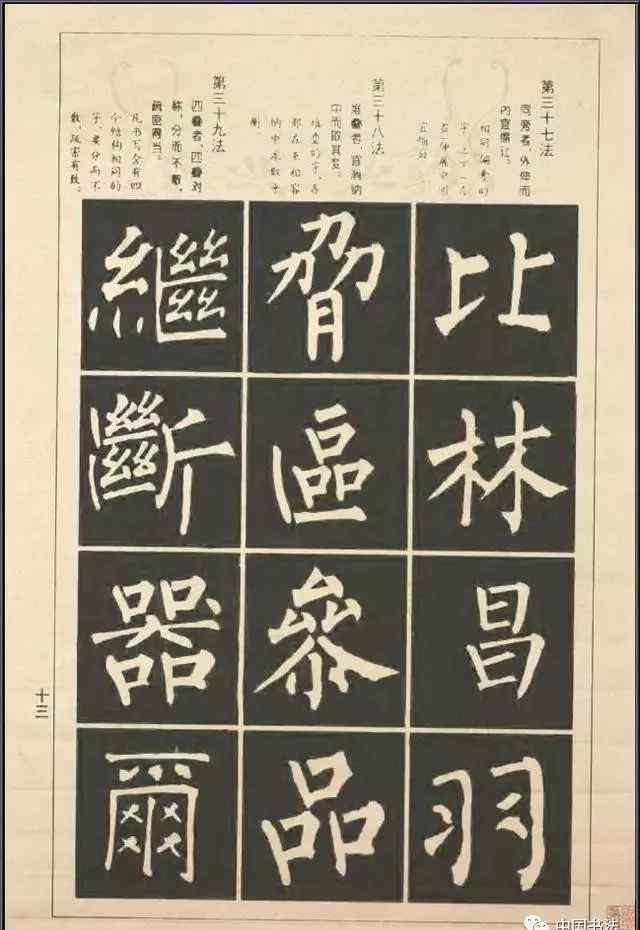 第三十七法
同旁者，外伸而
内宜缩让。
相同偏旁的
第三十八法
堆叠者，宜稍纳
中而取其复。
第三十九法
四叠者，四叠对
称，分而不散，
疏密得当。
凡书写含有四
个结构相同的
字，要分而不
散，疏密有致。
比
林
昌
羽
脅
區
參
品
繼
斷
器
爾
十三
中国书法